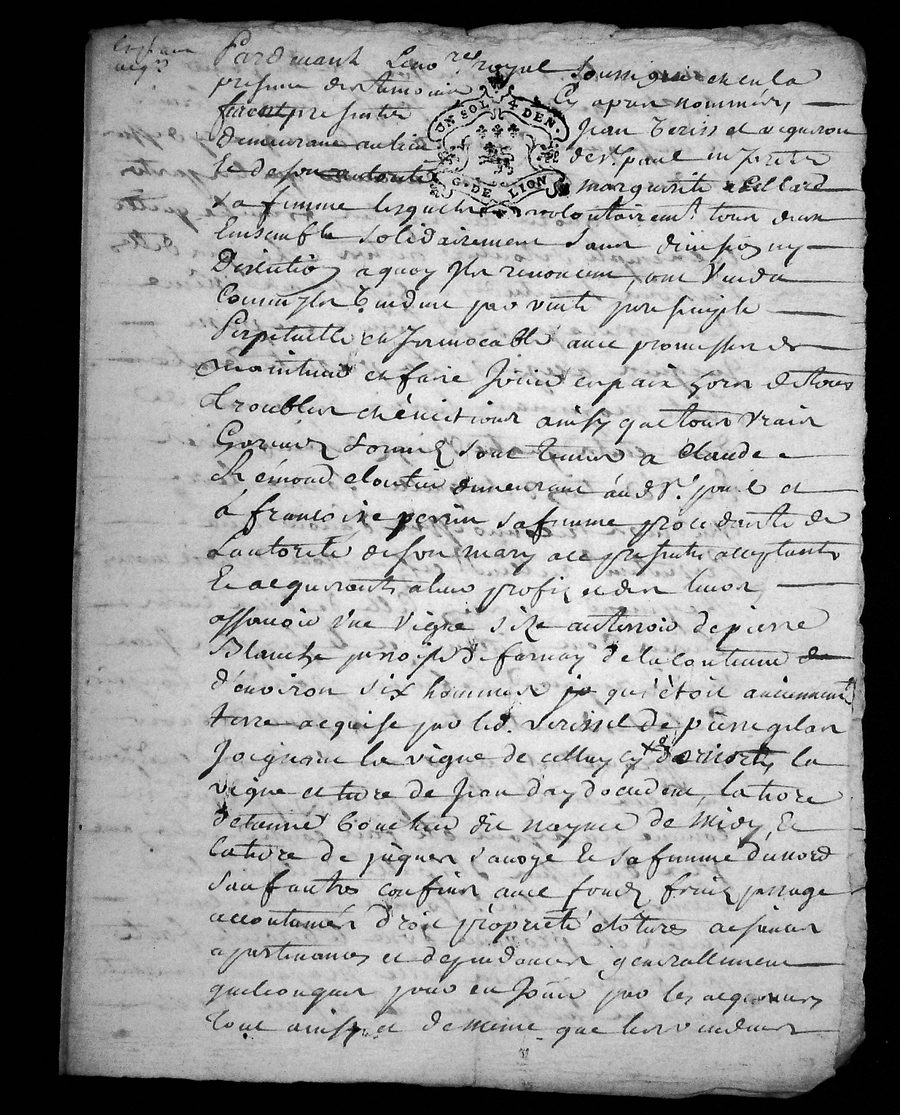 Pardevant Le no.re royal Soussigné et en la
presence des temoins Cy apres nommés
furent presents Jean Verissel vigneron
demeurant au lieu de St. paul en Jarets
Et de son autorité marguerite
sa femme lesquels volontairem.t tous deux
Ensemble Solidairement Sans division ny
Discution a quoy Ils renoncent, ont Vendu
Comme Ils Vendent par vente pure simple
Perpetuelle et Irrevocable avec promesse de
maintenir et faire Jouir en paix hors de tous
troubles et évictions ainsy que tous vrais
Sont tenus a Claude
demeurant aud. St. paul et
à francoise perrin sa femme procedante de
Lautorité de son mary acceptants
Et acquerants a leur profit et des leurs,
assavoir une Vigne size au terroir de pierre
Blanche parroisse de farnay de la contenue
d'environ six hommes qui étoit anciennement
terre acquise par led. Verissel de pierre gilas
Joignant la vigne de celluy cy de la
vigne et terre de Jean d'occident, la terre
détienne dit de midy, Et
la terre de Et sa femme du nord
Sauf autres confins avec fonds fruits passage
accoutumés droit proprieté clotures aisances
apartenances et dependances generallement
quelconques pour en Jouir par les acquereurs
tout ainsy et de meme que les vendeurs
UN SOL 4 DEN.
G. DE LION